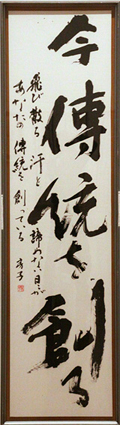 今傳統を創る
飛び散る汗と諦めない日々が
あなたの傳統を創っている